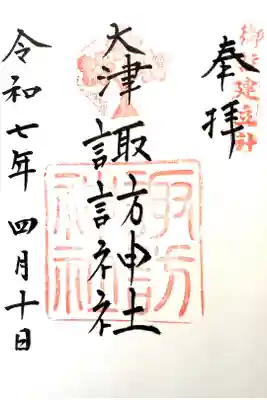 奉拝
大津
諏訪神社
令和七年 四月十日
諏訪
神社